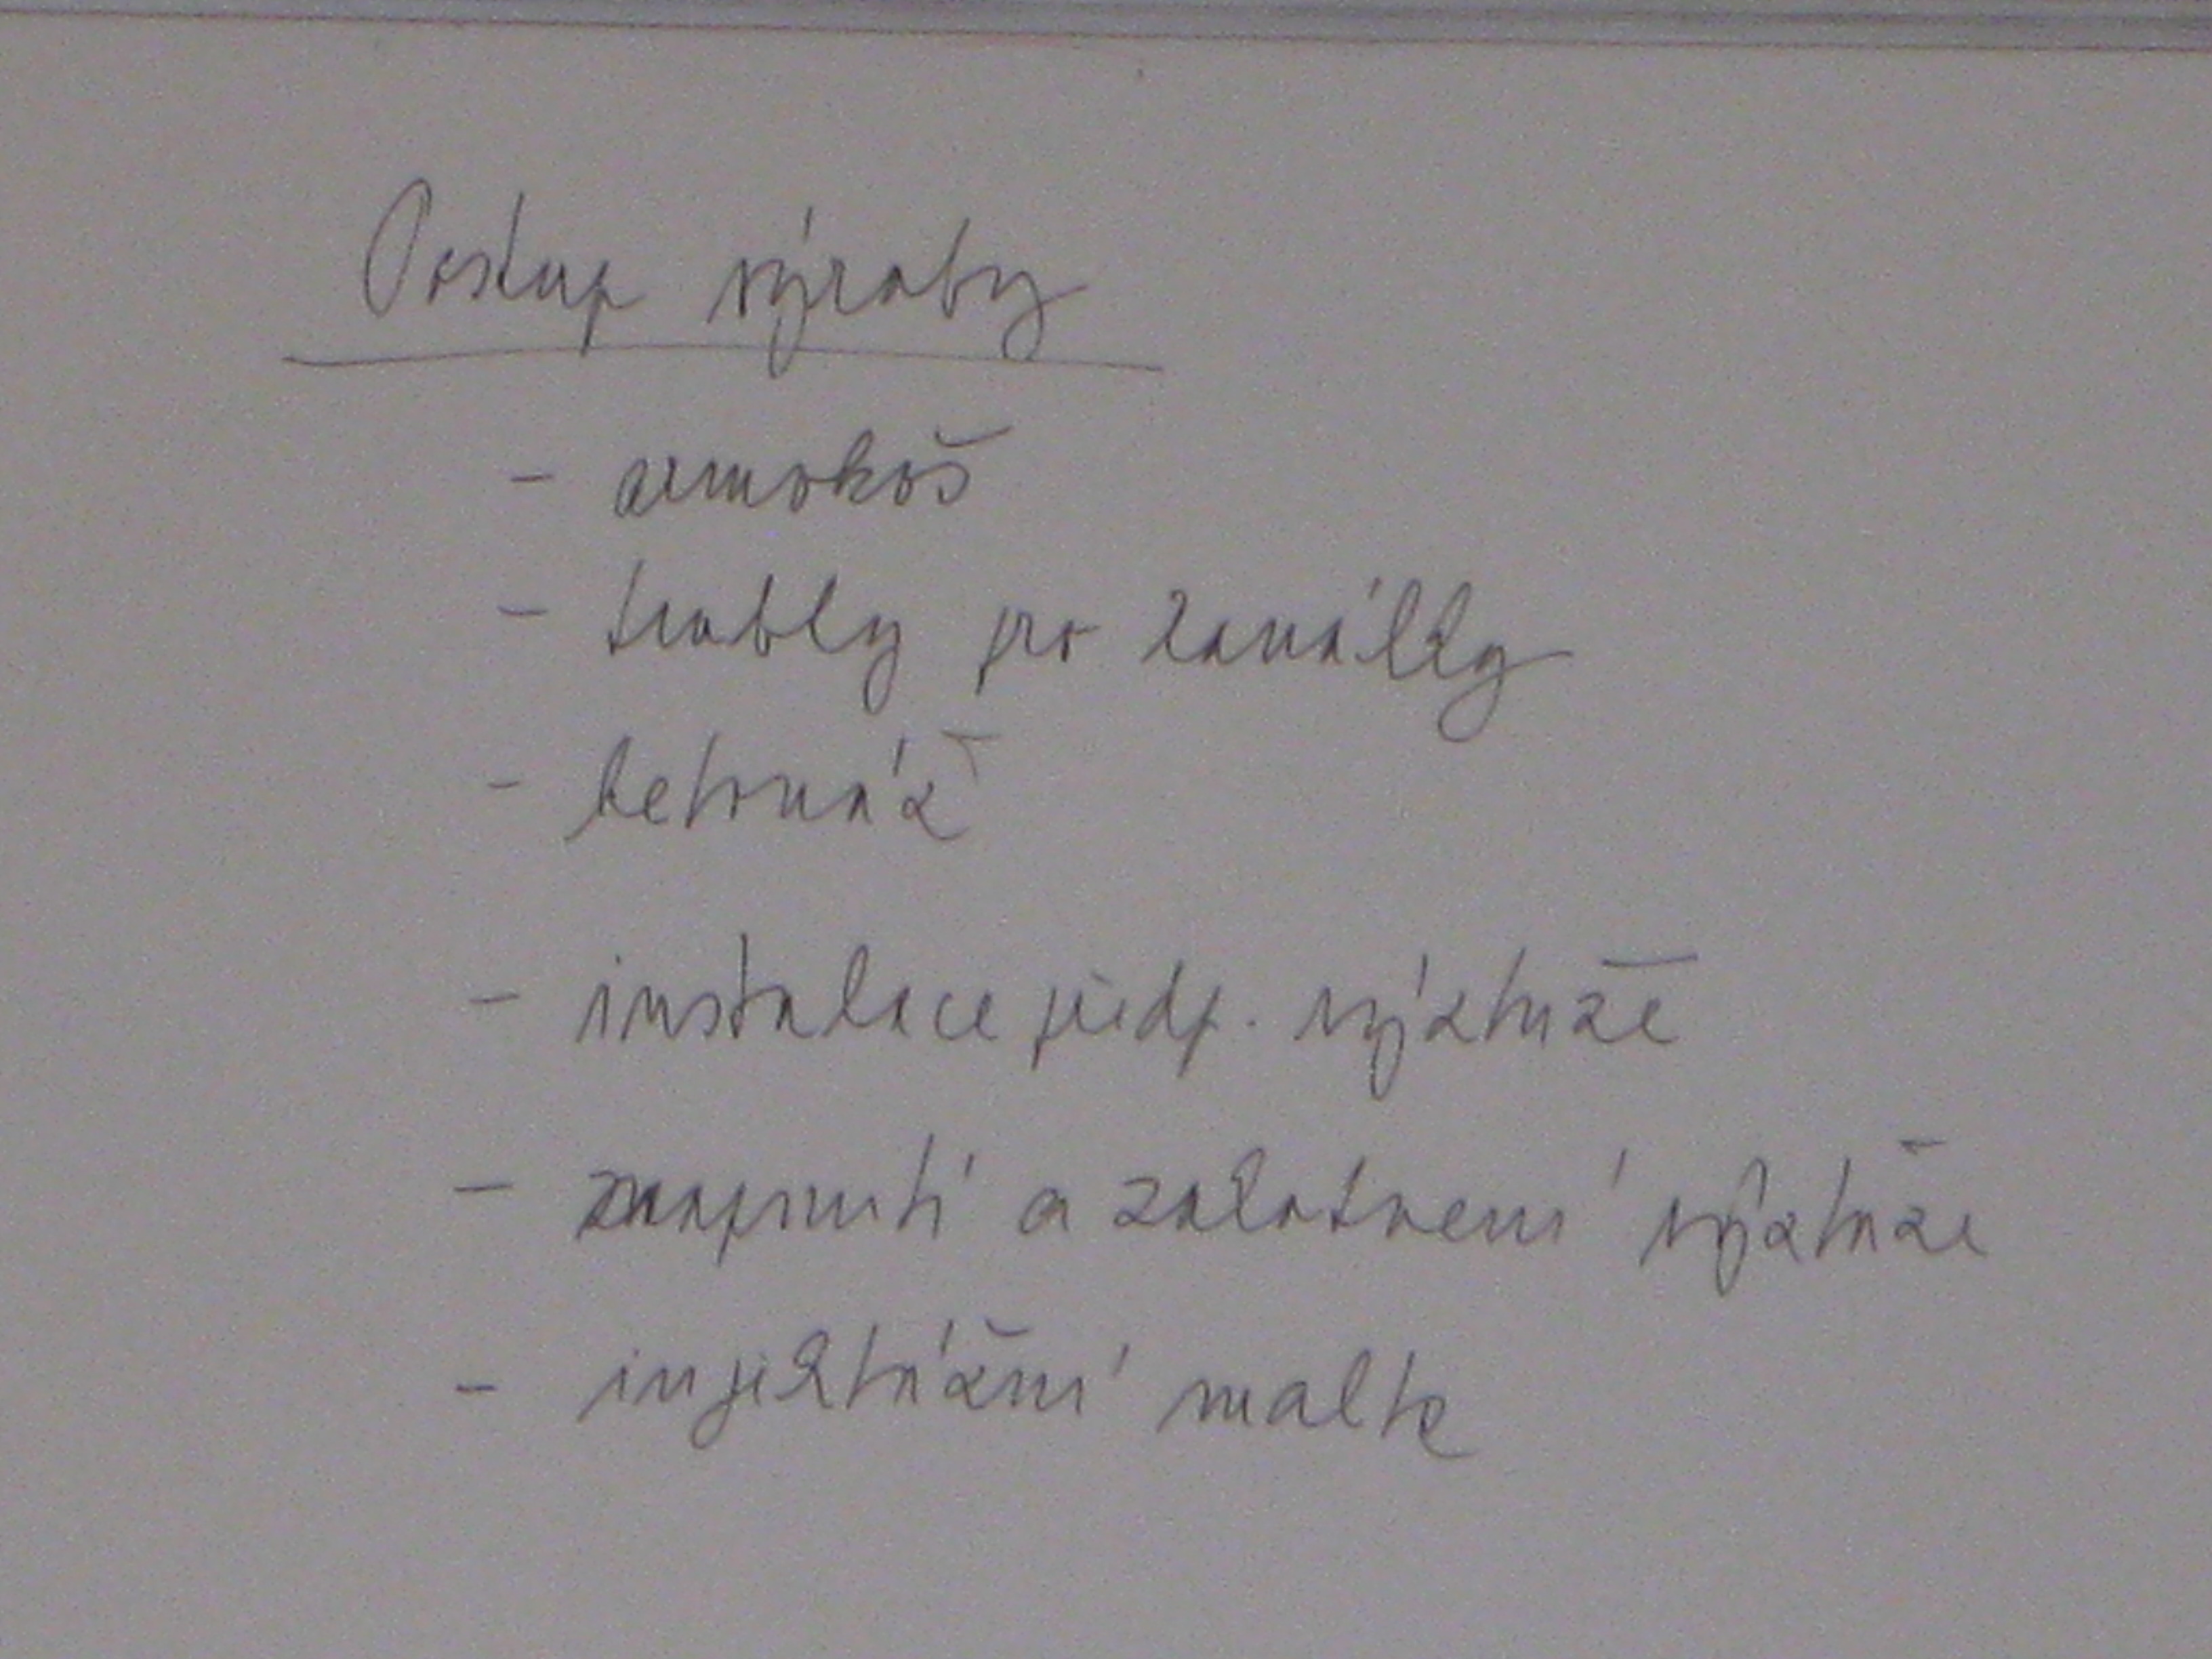 Postup výroby
- armokoš
- trubky pro kanálky
- betonáž
- instalace předp. výztuže
- napnutí a zakotvení výztuže
- injektážní malta